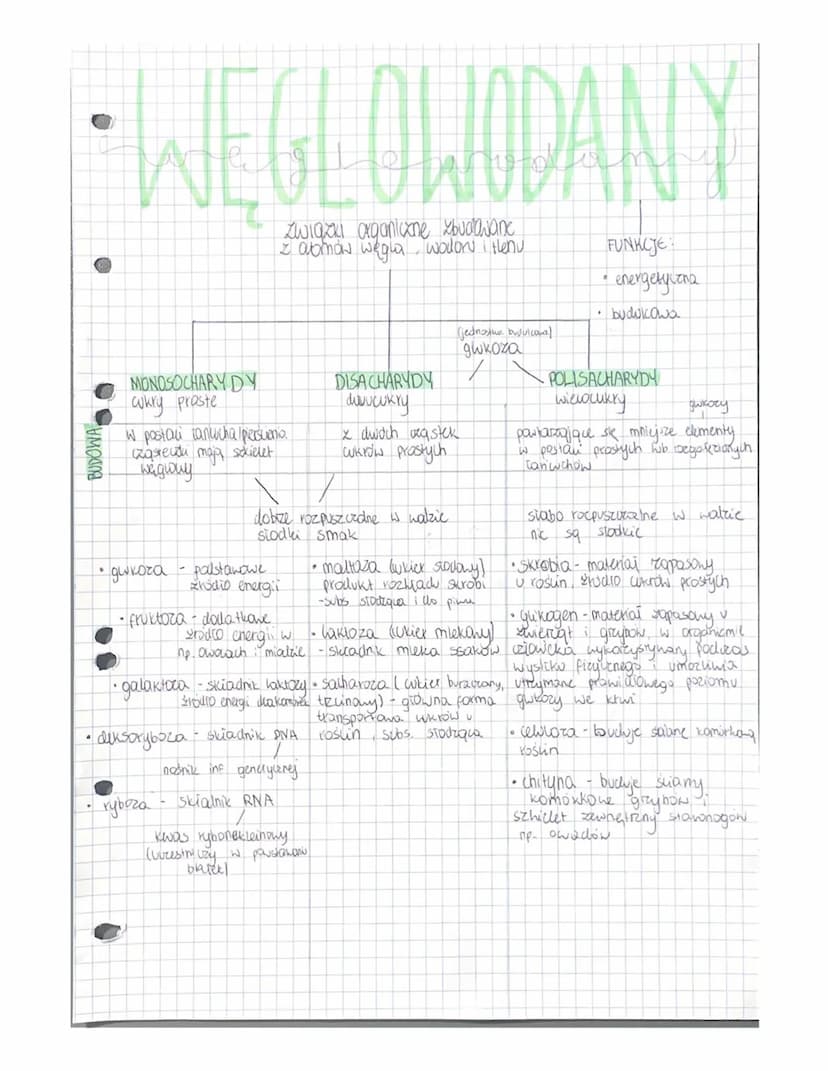 WĘGLOWODANY
węglowodany
związki organiczne zbudowane
z atomów węgla, wodoru i tlenu
FUNKCJE:
• energetyczna
• budulcowa
(jednostka budulcowa)
glukoza
MONOSOCHARYDY
cukry proste
DISACHARYDY
dwucukry
POLISACHARYDY
wielocukry
glukozy
BUDOWA
w postaci łańcucha/pierścienia
cząsteczki mają szkielet
węglowy
z dwóch cząstek
cukrów prostych
powtarzające się mniejsze elementy
w postaci prostych lub rozgałęzionych
łańcuchów
dobrze rozpuszczalne w wodzie
słodki smak
słabo rozpuszczalne w wodzie
nie są słodkie
• glukoza - podstawowe
źródło energii
• fruktoza - dodatkowe
źródło energii w
np. owocach i miodzie
• galaktoza - składnik laktozy
źródło energii
• deksoryboza - składnik DNA
nośnik inf genetycznej
• ryboza - składnik RNA
kwas rybonukleinowy
(uczestniczy w powstawaniu
białek)
• maltoza (cukier słodowy)
produkt rozkładu skrobi
- subs słodząca i do piwa
• laktoza (cukier mlekowy)
- składnik mleka ssaków
• sacharoza (cukier buraczany,
trzcinowy) - główna forma
transportowa cukrów u
roślin, subs. słodząca
• skrobia - materiał zapasowy
u roślin, źródło cukrów prostych
• glikogen - materiał zapasowy u
zwierząt i grzybów, w organizmie
człowieka wykorzystywany podczas
wysiłku fizycznego i umożliwia
utrzymanie prawidłowego poziomu
glukozy we krwi
• celuloza - buduje ścianę komórkową
roślin
• chityna - buduje ściany
komórkowe grzybów i
szkielet zewnętrzny stawonogów
np. owadów